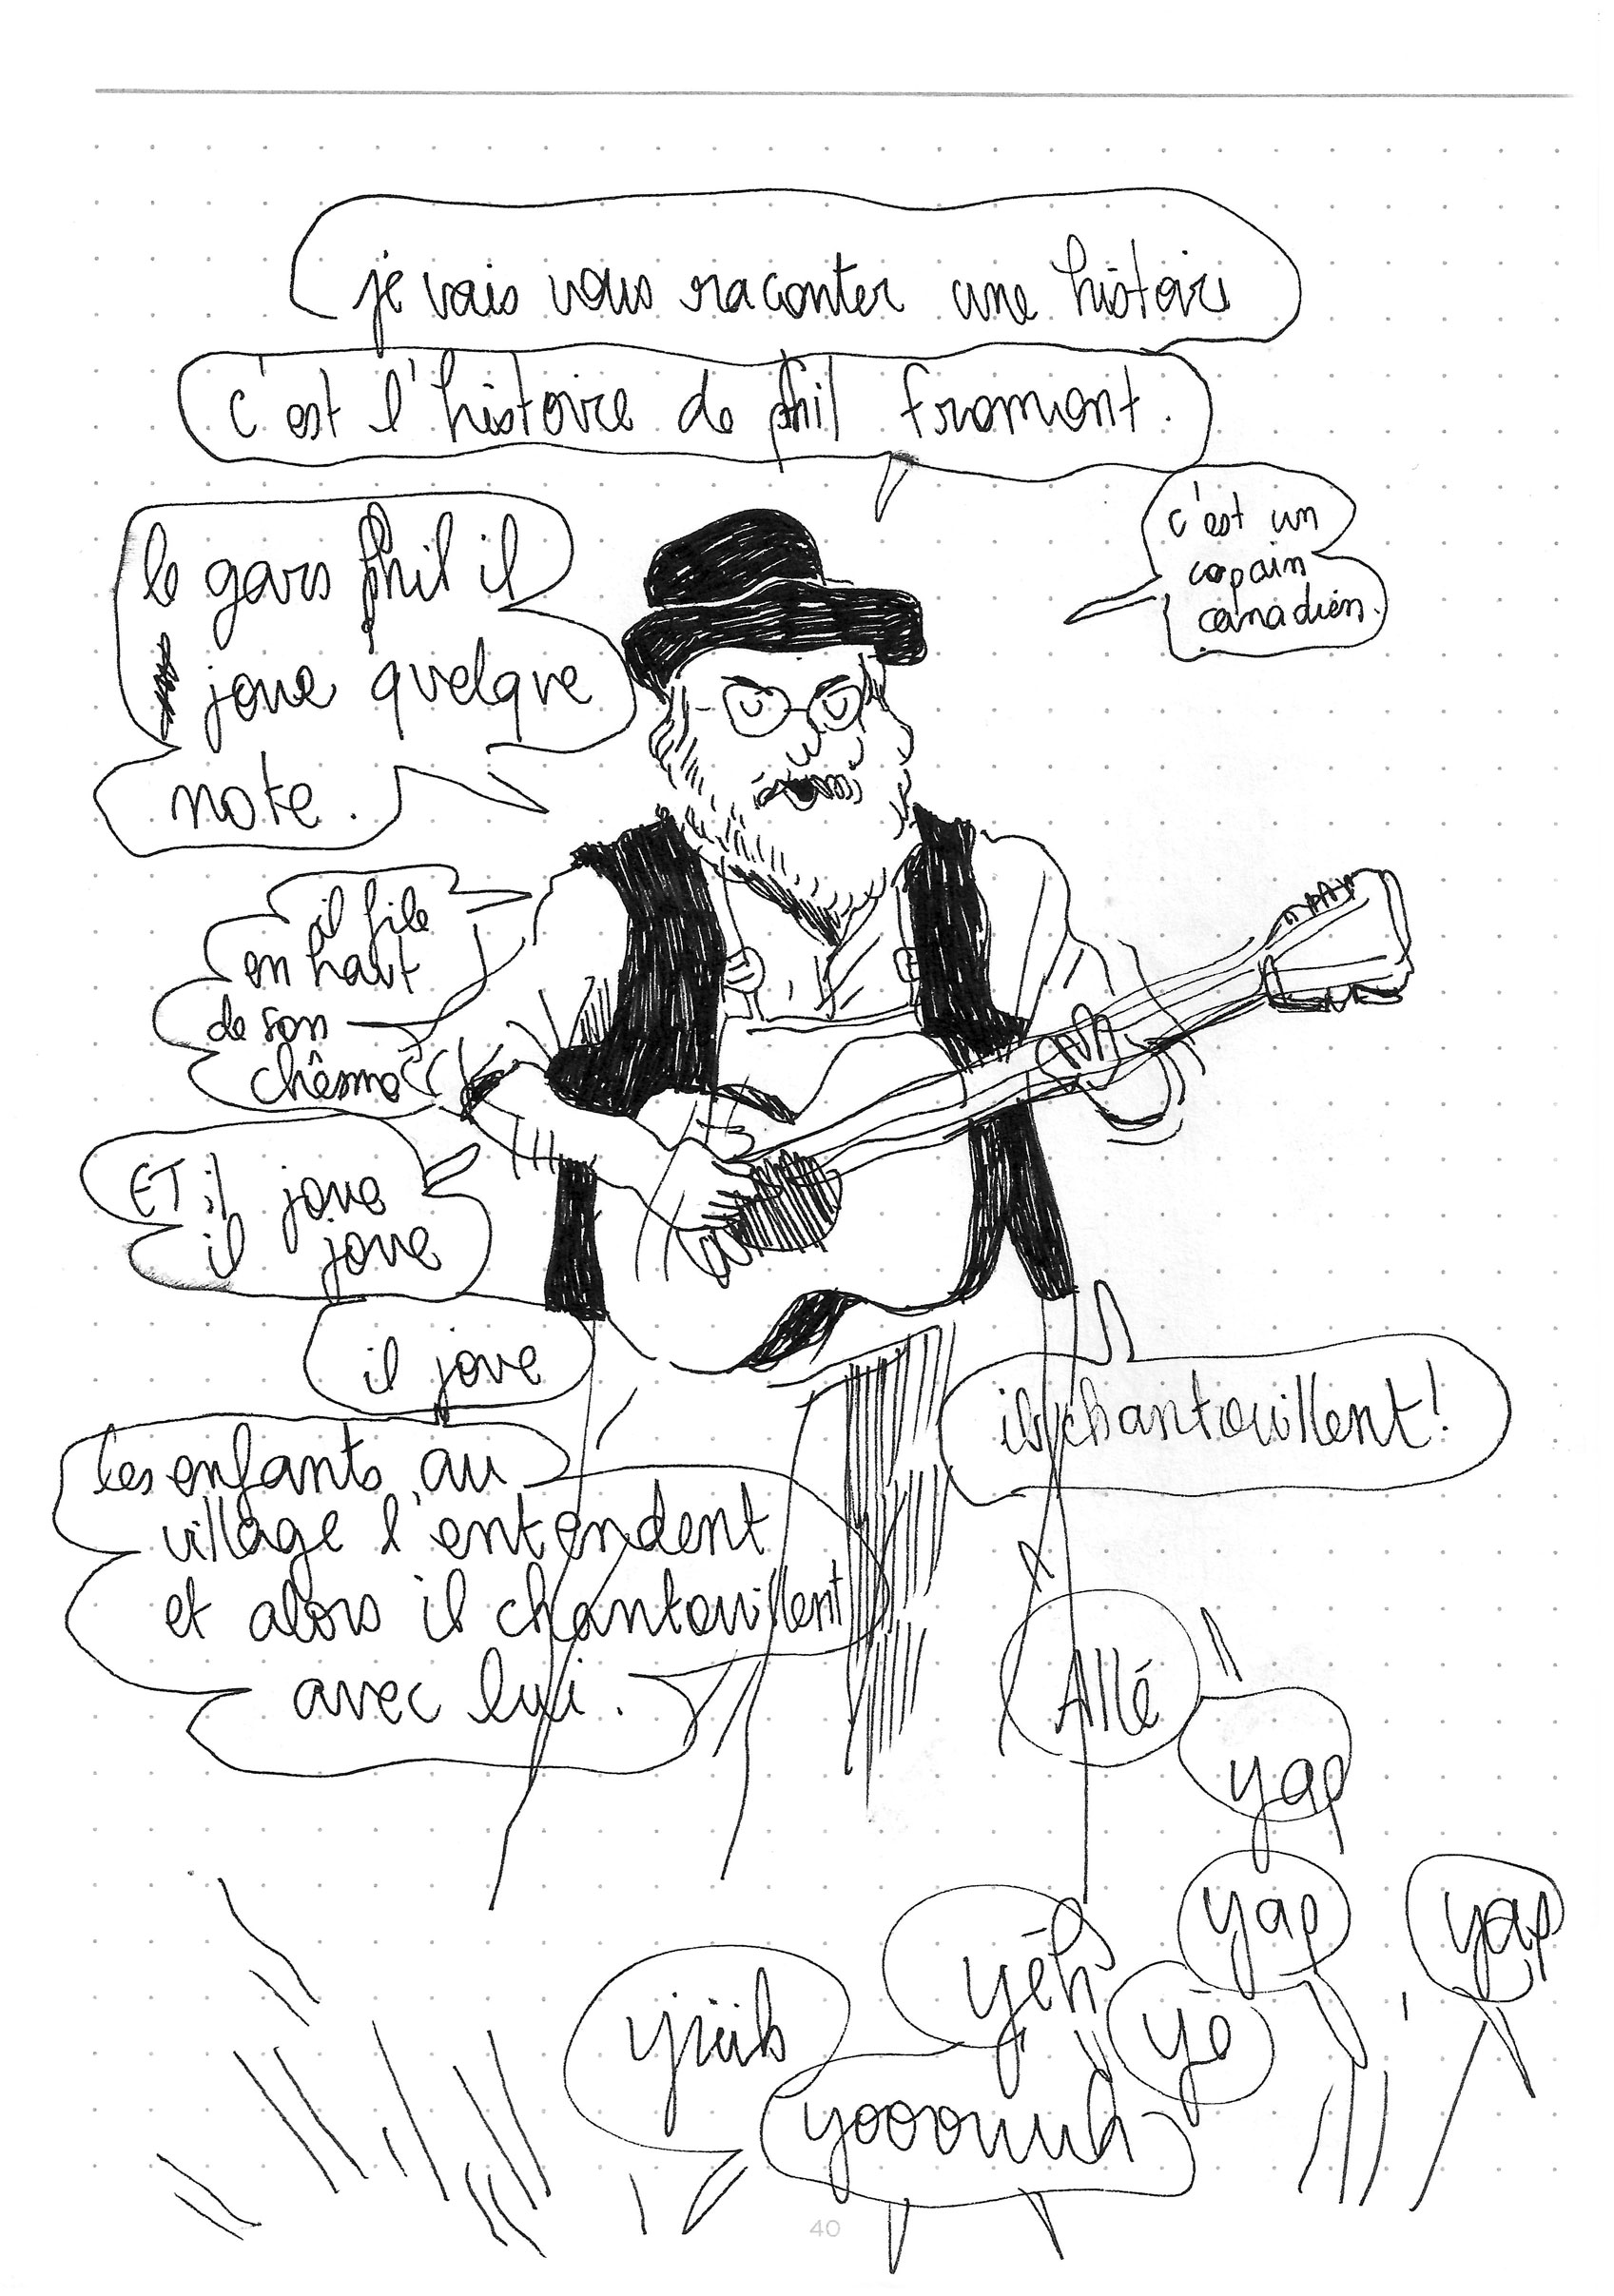 je vais vous raconter une histoire
c'est l'histoire de phil fromont.
c'est un
copain
canadien.
le gars phil il
joue quelque
note.
il file
en haut
de son
chêsne
ET il joue
il joue
il joue
les enfants au
village l'entendent
et alors il chantouillent
avec lui.
ils chantouillent!
Allé
yap
yap
yap
yéh
yè
yiiih
yooouuuh
40